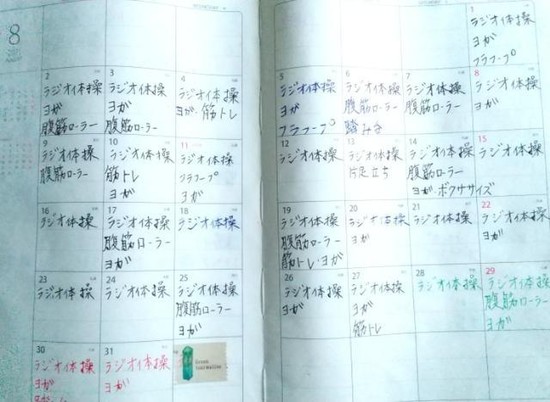 8
1
ラジオ体操
ヨガ
フラフープ
2
ラジオ体操
ヨガ
腹筋ローラー
3
ラジオ体操
ヨガ
腹筋ローラー
4
ラジオ体操
ヨガ・筋トレ
5
ラジオ体操
ヨガ
フラフープ
6
ラジオ体操
腹筋ローラー
踏みき
7
ラジオ体操
腹筋ローラー
ヨガ
8
ラジオ体操
ヨガ
9
ラジオ体操
腹筋ローラー
10
ラジオ体操
筋トレ
ヨガ
11
ラジオ体操
フラフープ
ヨガ
12
ラジオ体操
13
ラジオ体操
片足立ち
14
ラジオ体操
腹筋ローラー
ヨガ・ボクササイズ
15
ラジオ体操
16
ラジオ体操
17
ラジオ体操
腹筋ローラー
ヨガ
18
ラジオ体操
19
ラジオ体操
腹筋ローラー
筋トレ・ヨガ
20
ラジオ体操
ヨガ
21
ラジオ体操
22
ラジオ体操
ヨガ
23
ラジオ体操
24
ラジオ体操
25
ラジオ体操
腹筋ローラー
ヨガ
26
ラジオ体操
ヨガ
27
ラジオ体操
ヨガ
筋トレ
28
ラジオ体操
29
ラジオ体操
腹筋ローラー
ヨガ
30
ラジオ体操
ヨガ
31
ラジオ体操
ヨガ
Green
tourmaline